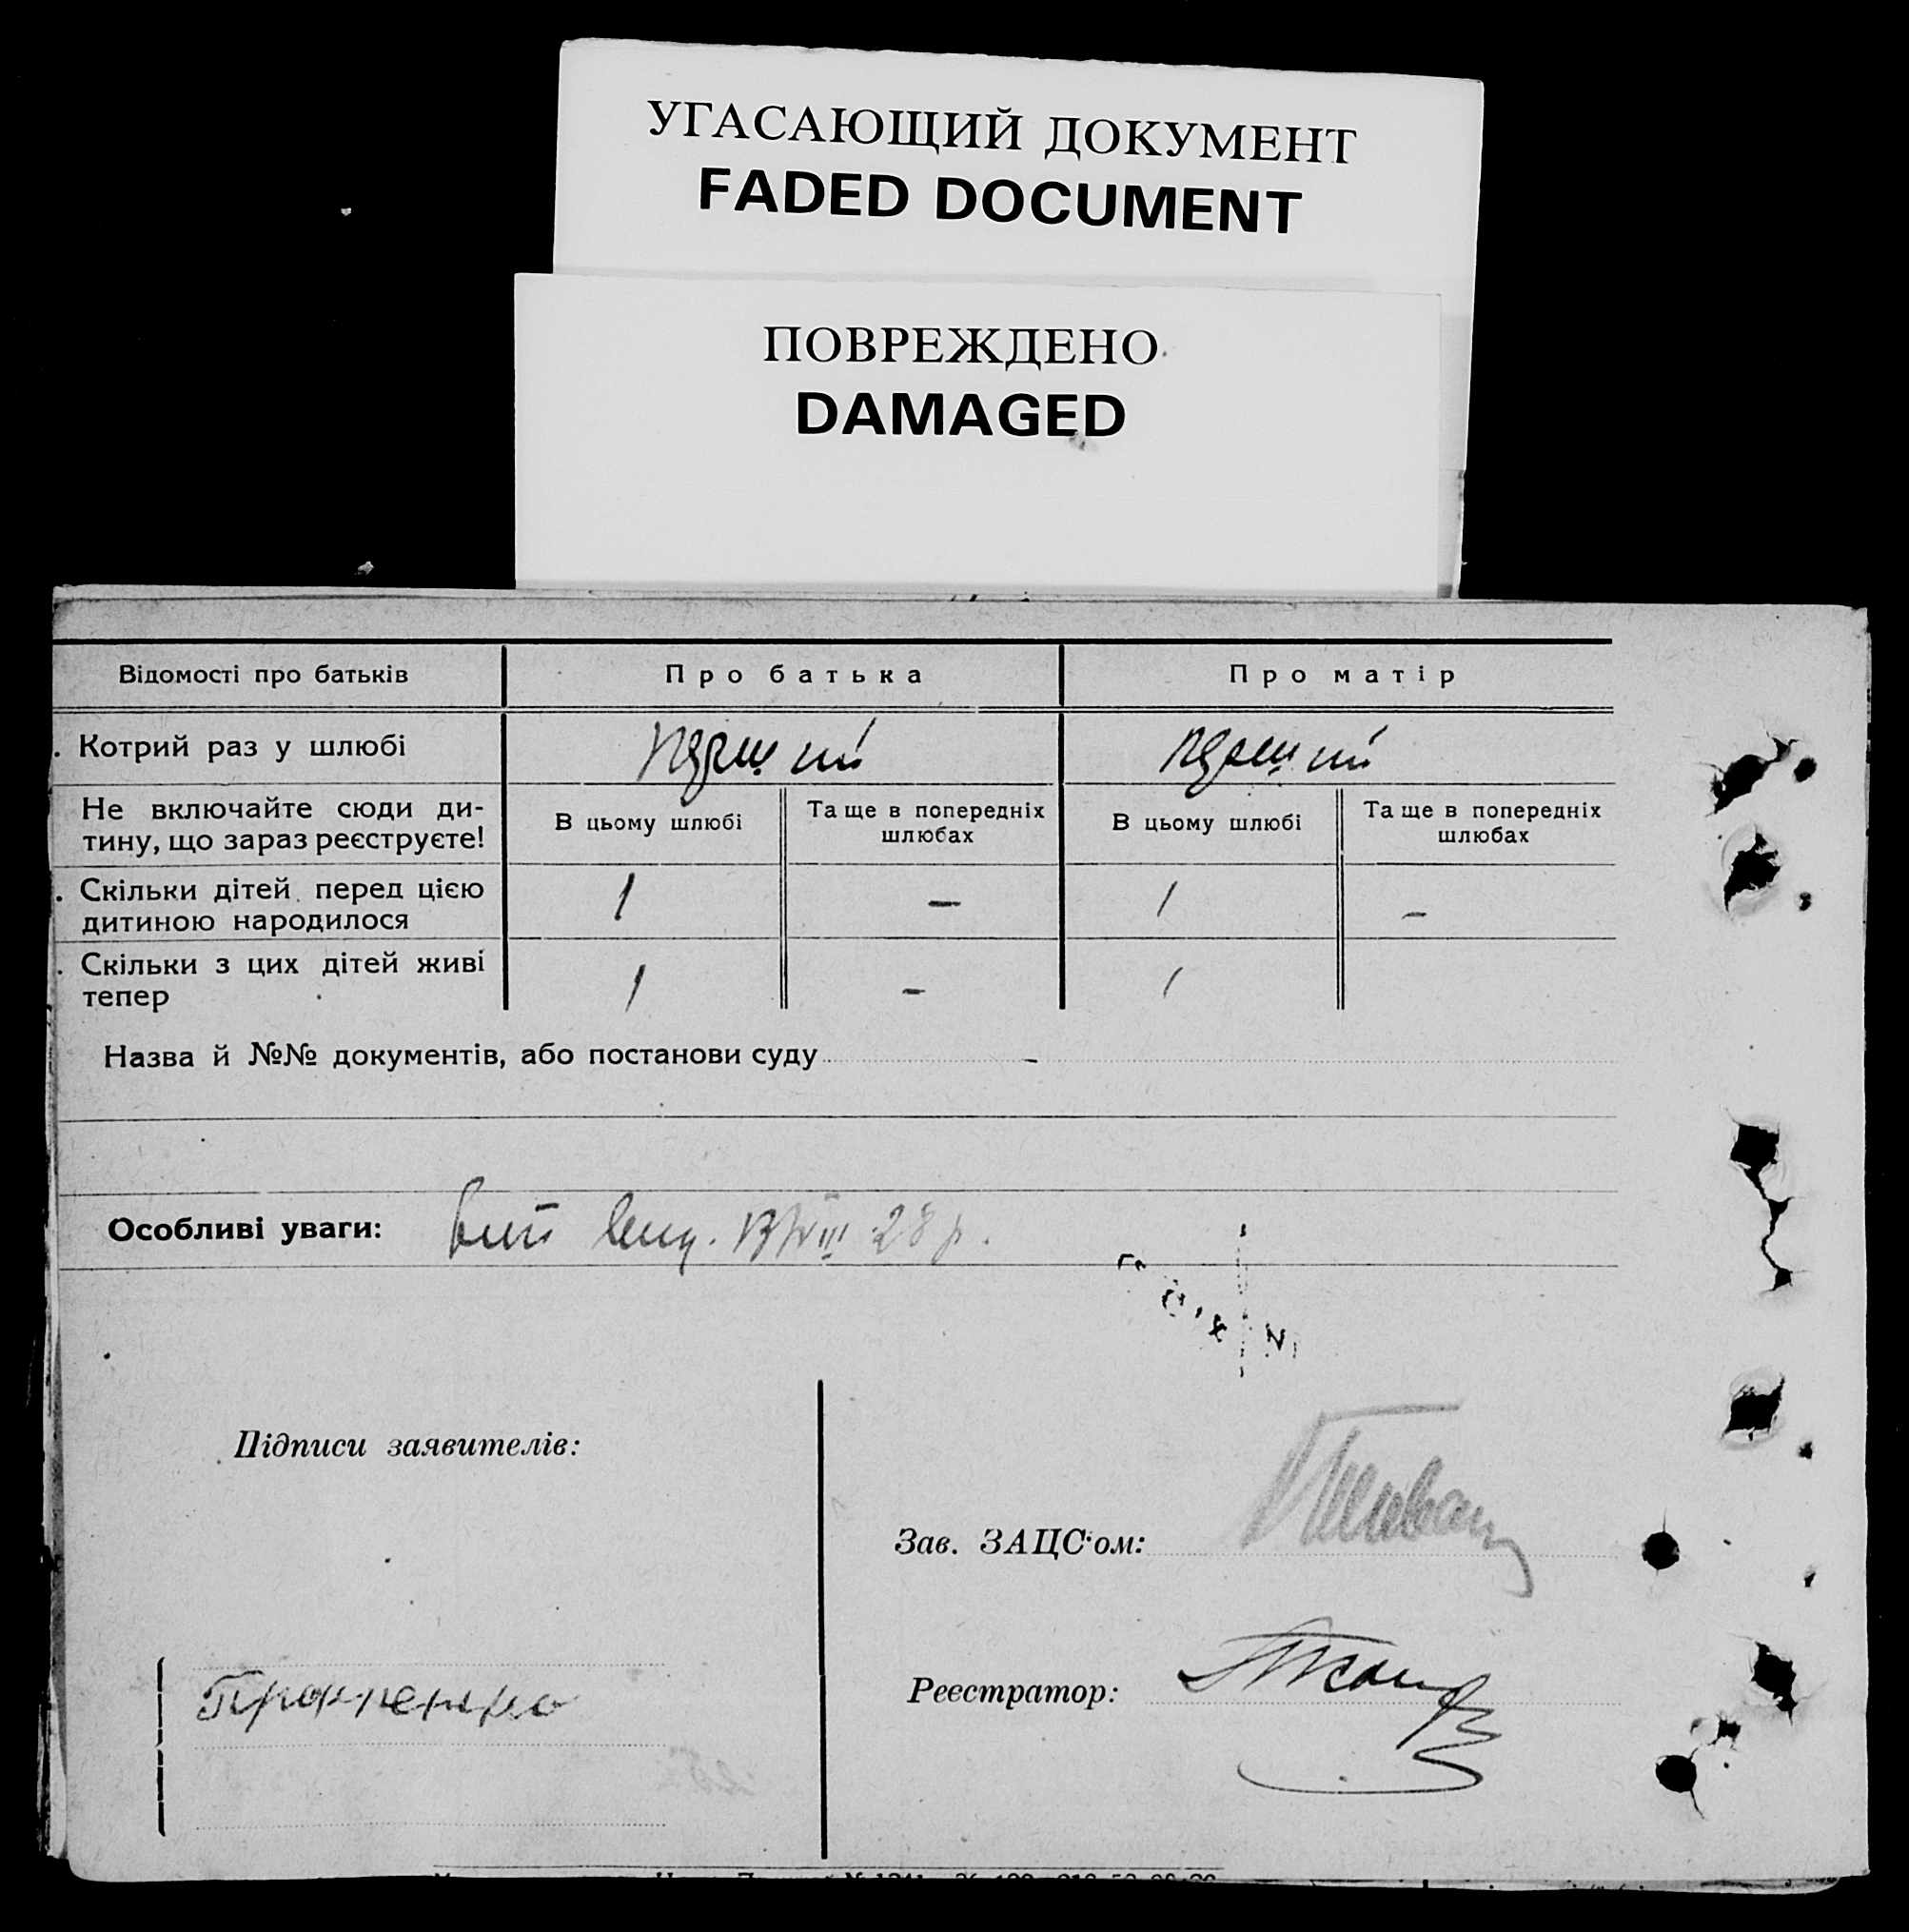 УГАСАЮЩИЙ ДОКУМЕНТ
FADED DOCUMENT
ПОВРЕЖДЕНО
DAMAGED
Відомості про батьків
Про батька
Про матір
. Котрий раз у шлюбі
перший
перший
Не включайте сюди ди-
тину, що зараз реєструєте!
В цьому шлюбі
Та ще в попередніх
шлюбах
В цьому шлюбі
Та ще в попередніх
шлюбах
. Скільки дітей перед цією
дитиною народилося
1
–
1
–
. Скільки з цих дітей живі
тепер
1
–
1
Назва й №№ документів, або постанови суду –
Особливі уваги: 28 р.
Підписи заявителів:
Зав. ЗАЦС'ом:
Реєстратор: